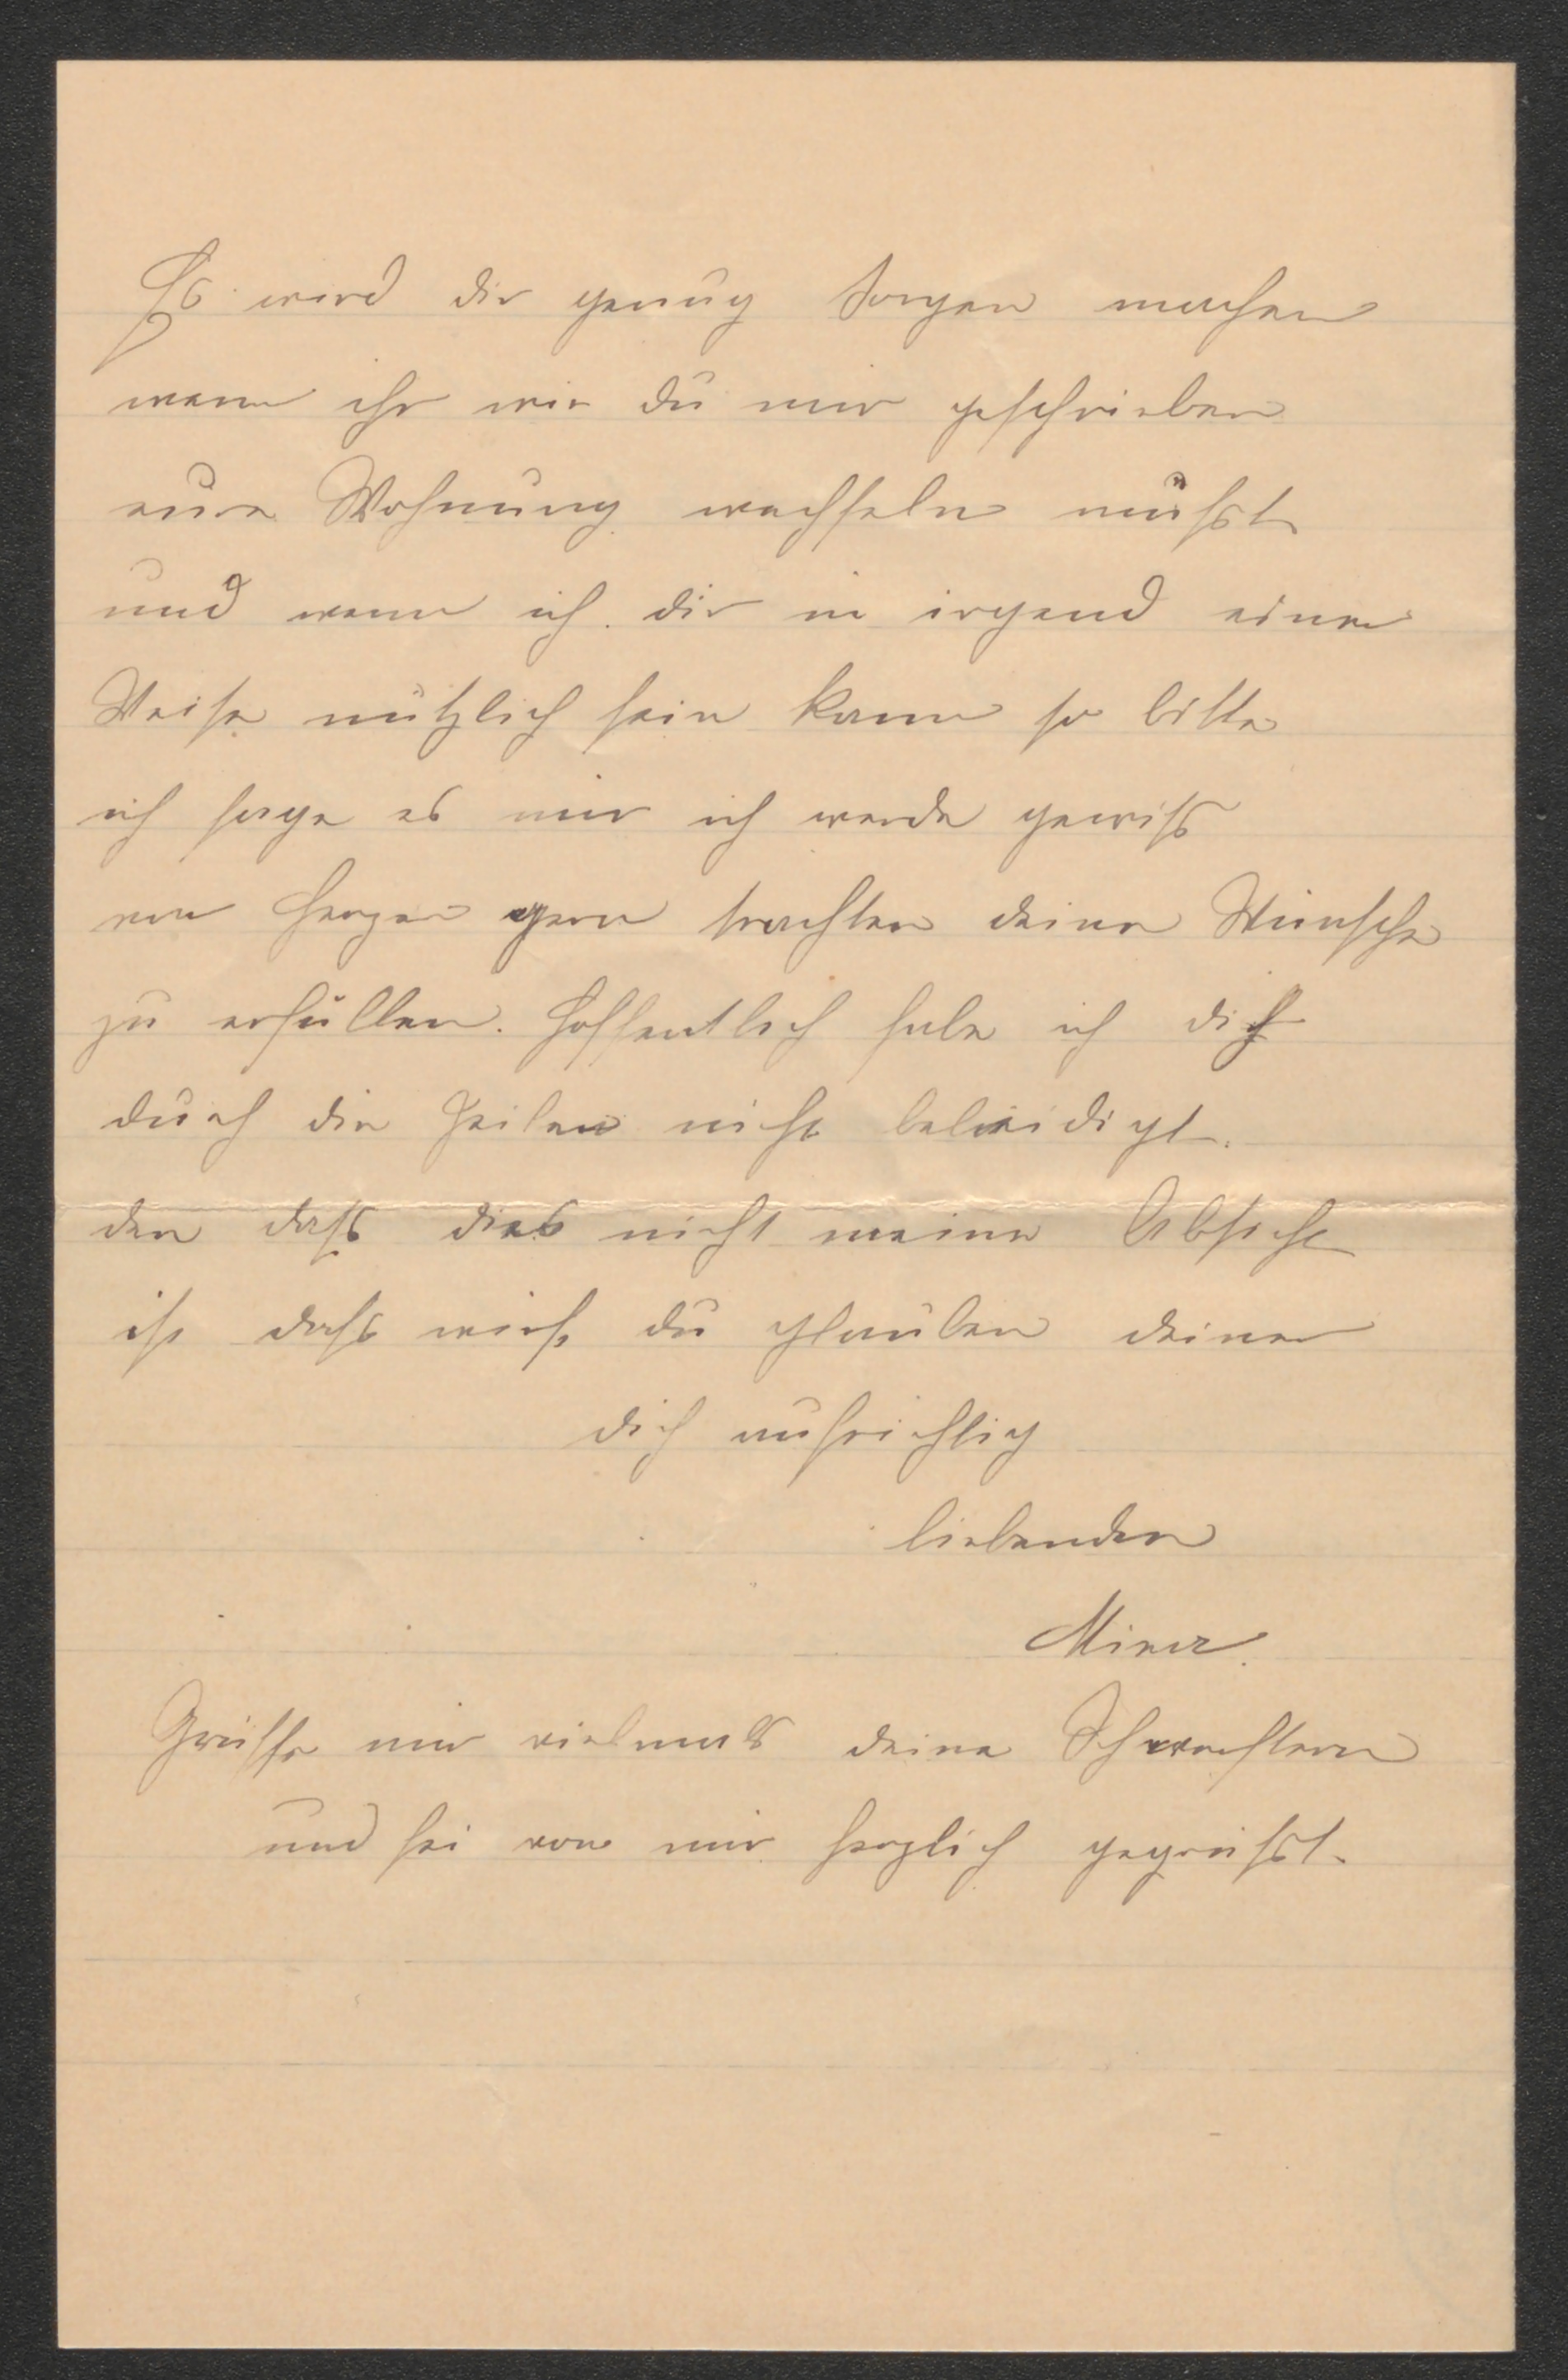 Es wird dir genug Sorgen machen
wenn ihr wie du mir geschrieben
eure Wohnung wechseln müßt
und wenn ich dir in irgend einer
Weise nützlich sein kann so bitte
ich sage es mir ich werde gewiß
von Herzen gern trachten deine Wünsche
zu erfüllen. Hoffentlich habe ich dich
durch die Zeilen nicht beleidigt.
den daß dies nicht meine Absicht
ist daß wirst du glauben deiner
dich aufrichtig
liebenden
Mina.
Grüsse mir vielmals deine Schwestern
und sei von mir herzlich gegrüßt.